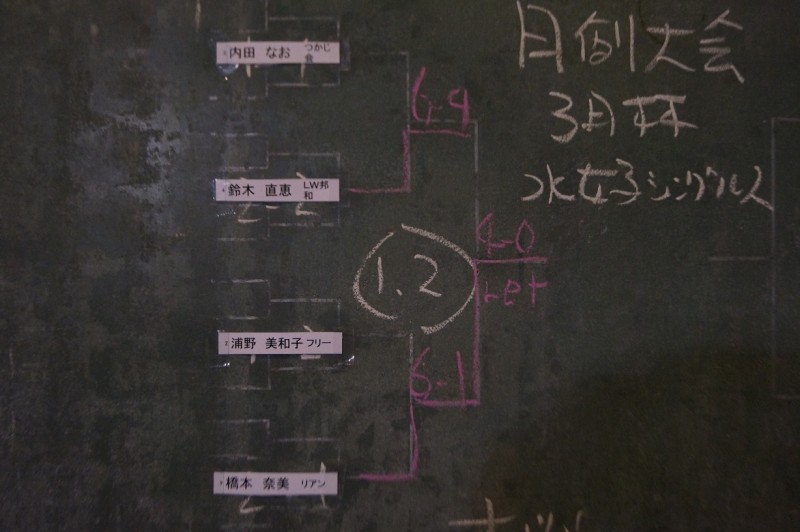 月例大会
3月杯
水女子シングルス
内田 なお つかじ会
6-4
鈴木 直恵 LW邦和
4-0
ret
1、2
浦野 美和子 フリー
6-1
橋本 奈美 リアン